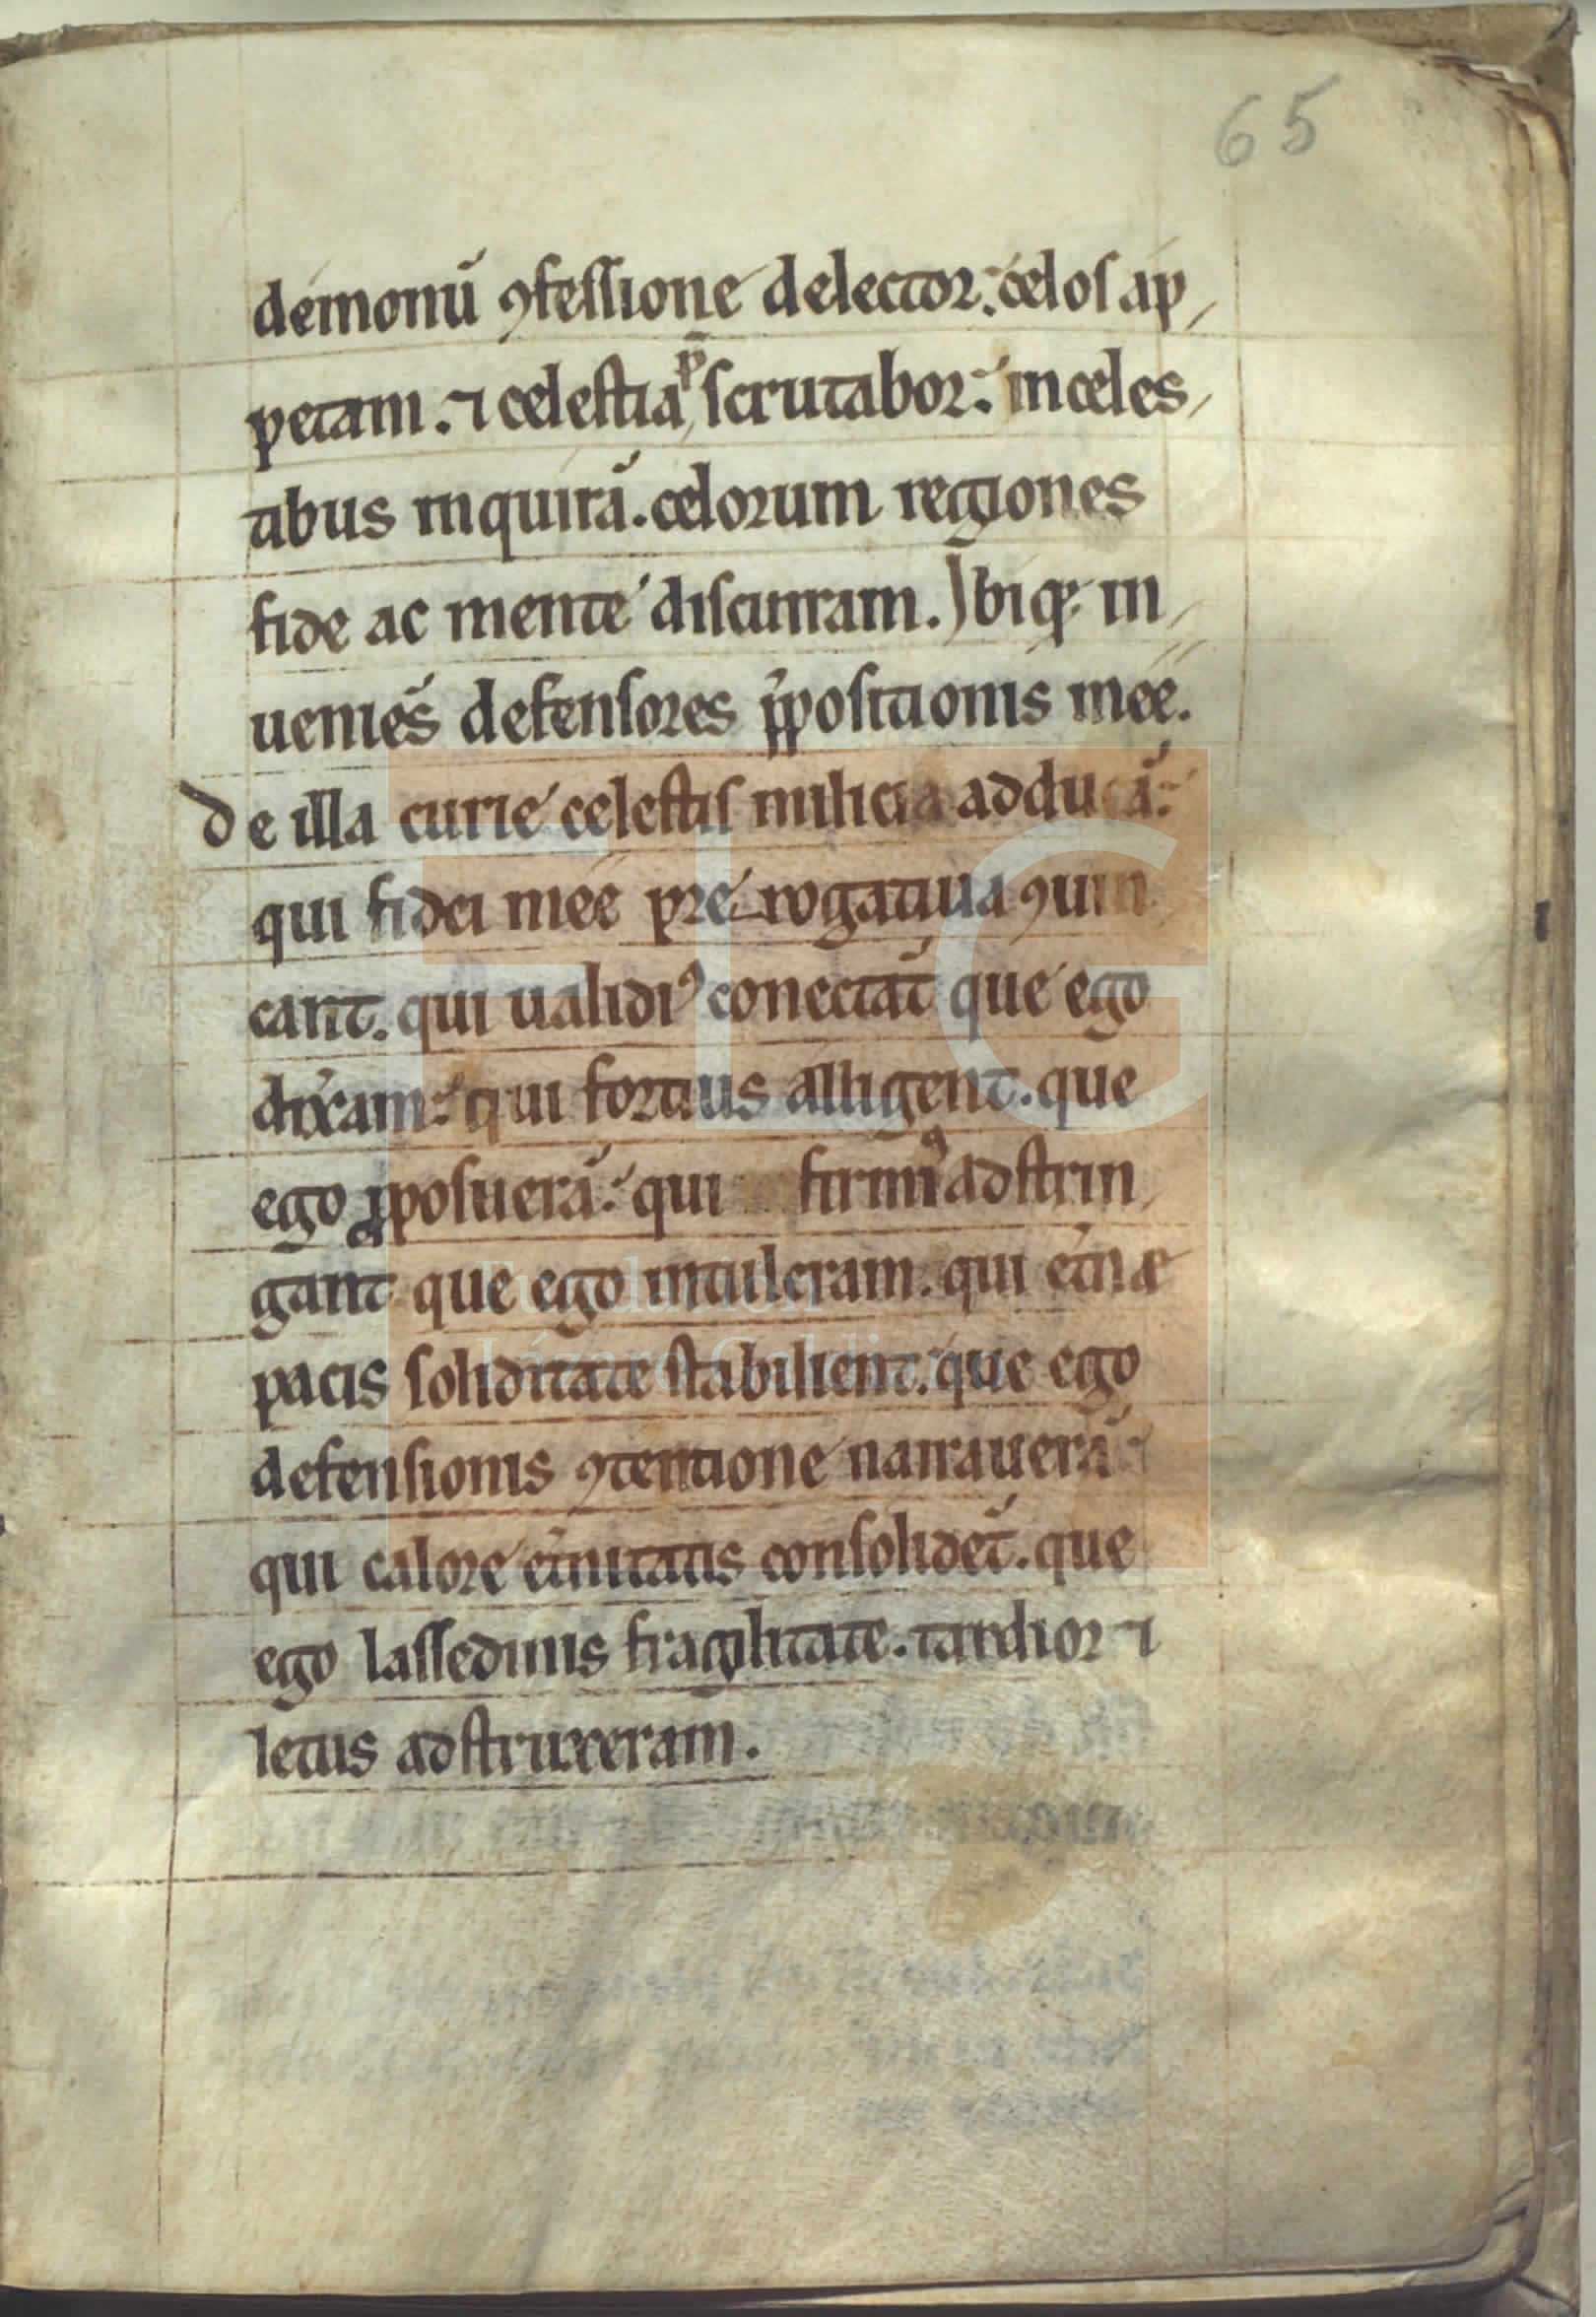 65
demonū ꝯfessione delector: celos ap
petam. ⁊ celestia p̱scrutabor: in celes
tibus inquirā. celorum regiones
fide ac mente discurram. Ibiq; in
ueniēs defensores ꝓpositionis mee.
De illa curie celestis milicia adducā:
qui fidei mee prerogatiua ꝯuin
cant. qui ualidiꝰ conectāt que ego
dixeram: qui fortius alligent. que
ego ꝓposuerā: qui firmiꝰ adstrin
gant que ego intuleram. qui et̄næ
pacis soliditate stabilient. que ego
defensionis ꝯtentione narrauerā:
qui calore et̄nitatis consolidēt. que
ego lassedinis fragilitate. tardior ⁊
letus adstruxeram.
Lázaro Galdiano
FLG